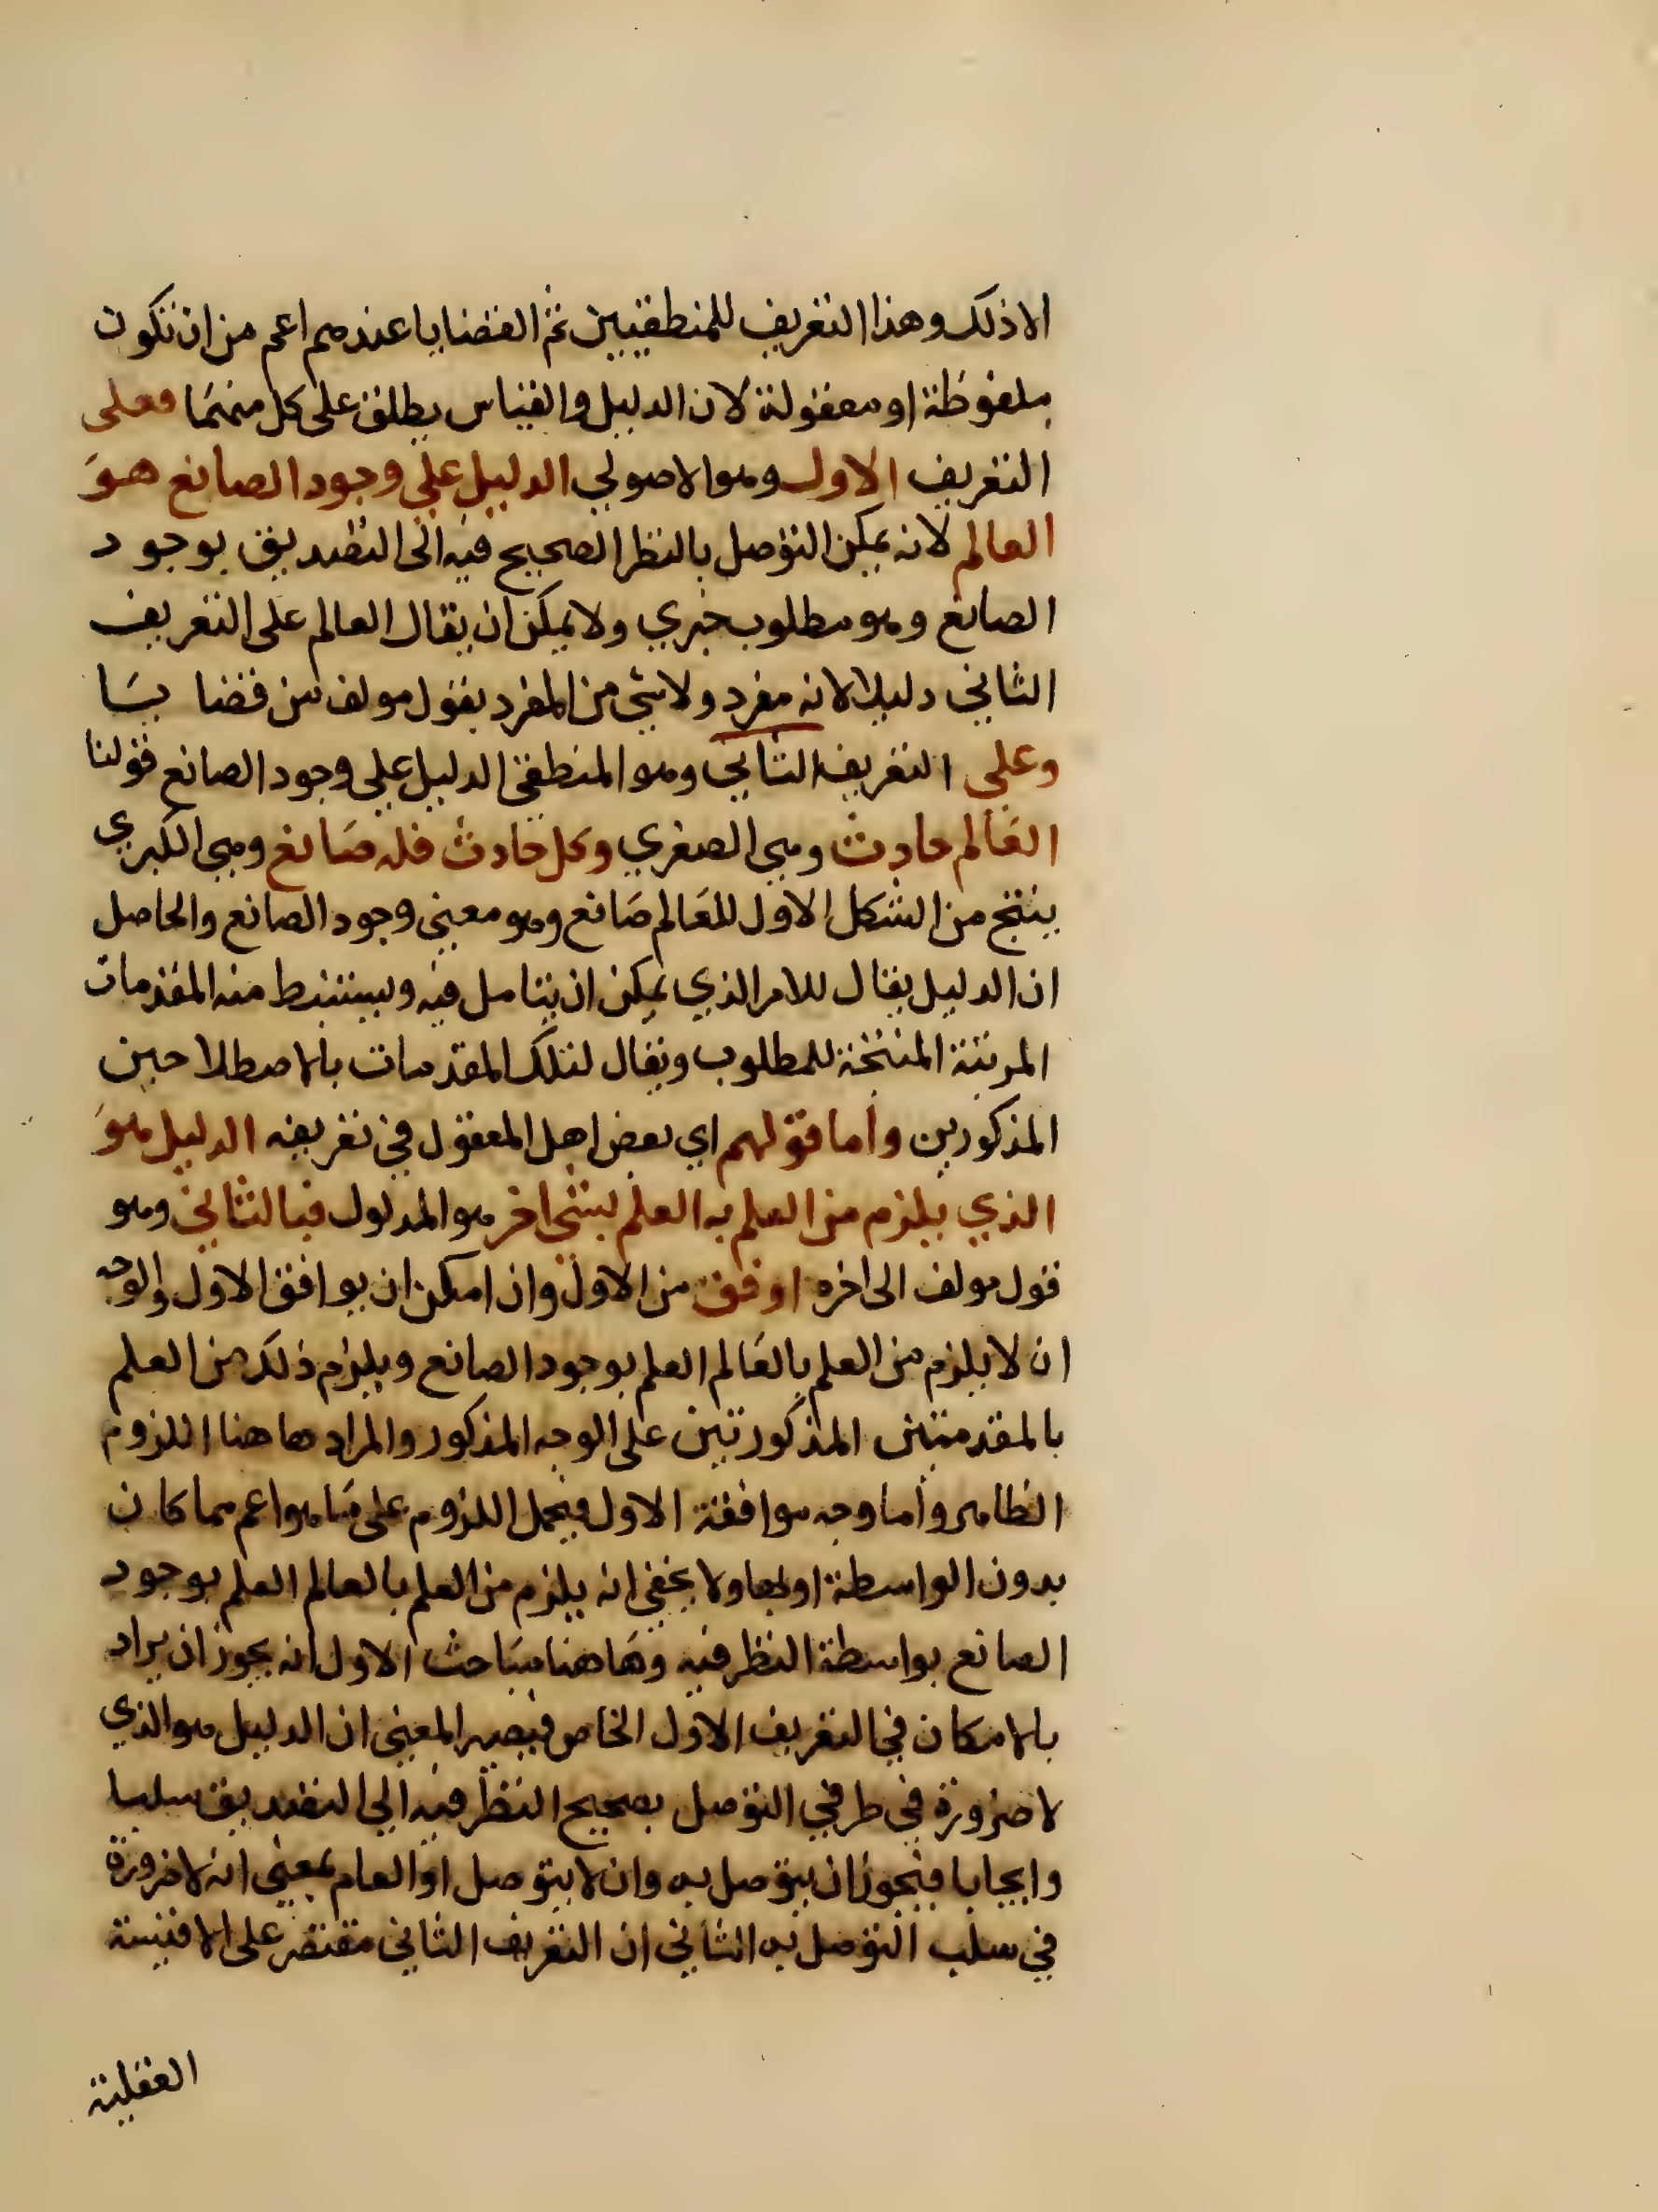 الا ذلك وهذا التعريف للمنطقيين ثم القضايا عندهم اعم من ان تكون
ملفوظة او معقولة لان الدليل والقياس يطلق على كل منهما فعلى
التعريف الاول وهو الاصولي الدليل على وجود الصانع هو
العالم لانه يمكن التوصل بالنظر الصحيح فيه الى التصديق بوجود
الصانع وهو مطلوب خبري ولا يمكن ان يقال العالم على التعريف
الثاني دليلا لانه مفرد ولا شئ من المفرد بقول مولف من قضا يسا
وعلى التعريف الثاني وهو المنطقي الدليل على وجود الصانع قولنا
العالم حادث وهي الصغري وكل حادث فله صانع وهي الكبري
ينتج من الشكل الاول للعالم صانع وهو معنى وجود الصانع والحاصل
ان الدليل يقال للامر الذي يمكن ان يتامل فيه ويستنبط منه المقدمات
المرتبة المنتجة للمطلوب ويقال لتلك المقدمات بالاصطلاحين
المذكورين واما قولهم اي بعض اهل المعقول في تعريفه الدليل هو
الذي يلزم من العلم به العلم بشئ اخر هو المدلول فبالثاني وهو
قول مولف الى اخره اوفق من الاول وان امكن ان يوافق الاول والوجه
ان لا يلزم من العلم بالعالم العلم بوجود الصانع ويلزم ذلك من العلم
بالمقدمتين المذكورتين على الوجه المذكور والمراد هاهنا اللزوم
الظاهر واما وجه موافقة الاول فيحمل اللزوم على ما هو اعم مما كان
بدون الواسطة او بها ولا يخفي انه يلزم من العلم بالعالم العلم بوجود
الصانع بواسطة النظر فيه وهاهنا مباحث الاول انه يجوز ان يراد
بالامكان في التعريف الاول الخاص فيصير المعنى ان الدليل هو الذي
لا ضرورة في طرفي التوصل بصحيح النظر فيه الى التصديق سلبا
وايجابا فيجوز ان يتوصل به وان لا يتوصل او العام بمعنى انه لا ضرورة
في سلب التوصل به الثاني ان التعريف الثاني مقتصر على الاقيسة
العقلية